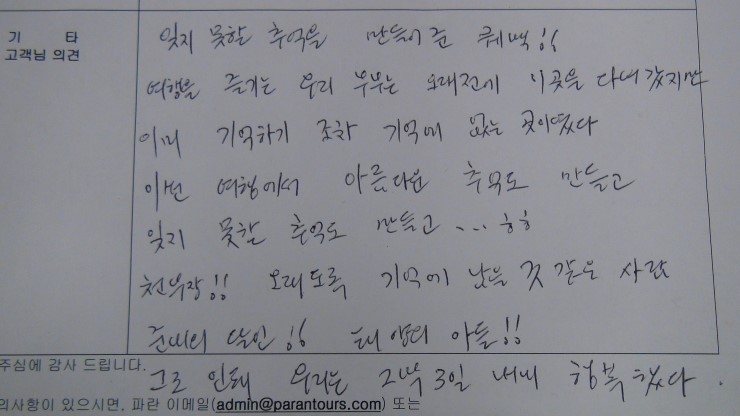 기 타
고객님 의견
잊지 못할 추억을 만들어 준 퀘백!!
여행을 즐기는 우리 부부는 오래전에 이곳을 다녀 갔지만
이미 기억하기 조차 기억에 없는 곳이였다
이번 여행에서 아름다운 추억도 만들고
잊지 못할 추억도 만들고 ... ㅎㅎ
천부장!! 오래도록 기억에 남을 것 같은 사람
준비의 달인!! 태양의 아들!!
주심에 감사 드립니다.
그로 인해 우리는 2박 3일 내내 행복했다.
의사항이 있으시면, 파란 이메일(admin@parantours.com) 또는